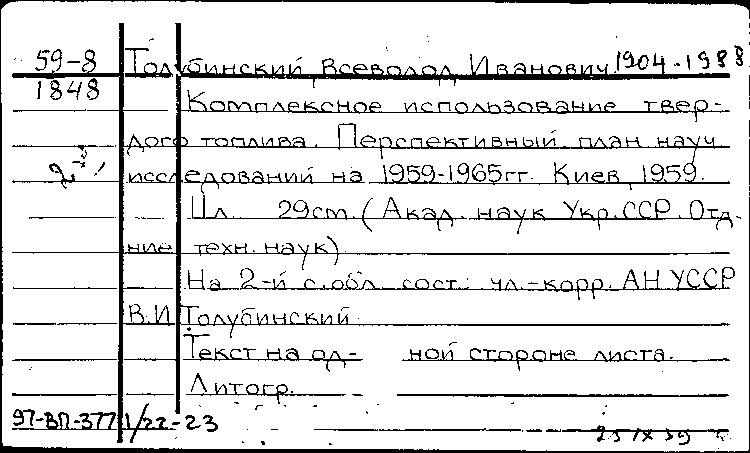 59-8 Толубинский, Всеволод Иванович 1904-1988
1848
Комплексное использование твер-
дого топлива. Перспективный план науч.
исследований на 1959-1965гг. Киев, 1959.
29cm. (Акад. наук Укр.ССР. Отд-
ние техн. наук)
На 2-й с. обл. сост.: чл.-корр. АН УССР
В.И. Толубинский.
Текст на од- ной стороне листа.
Литогр.
97-ВП-377 1/22-23
25 IX 59